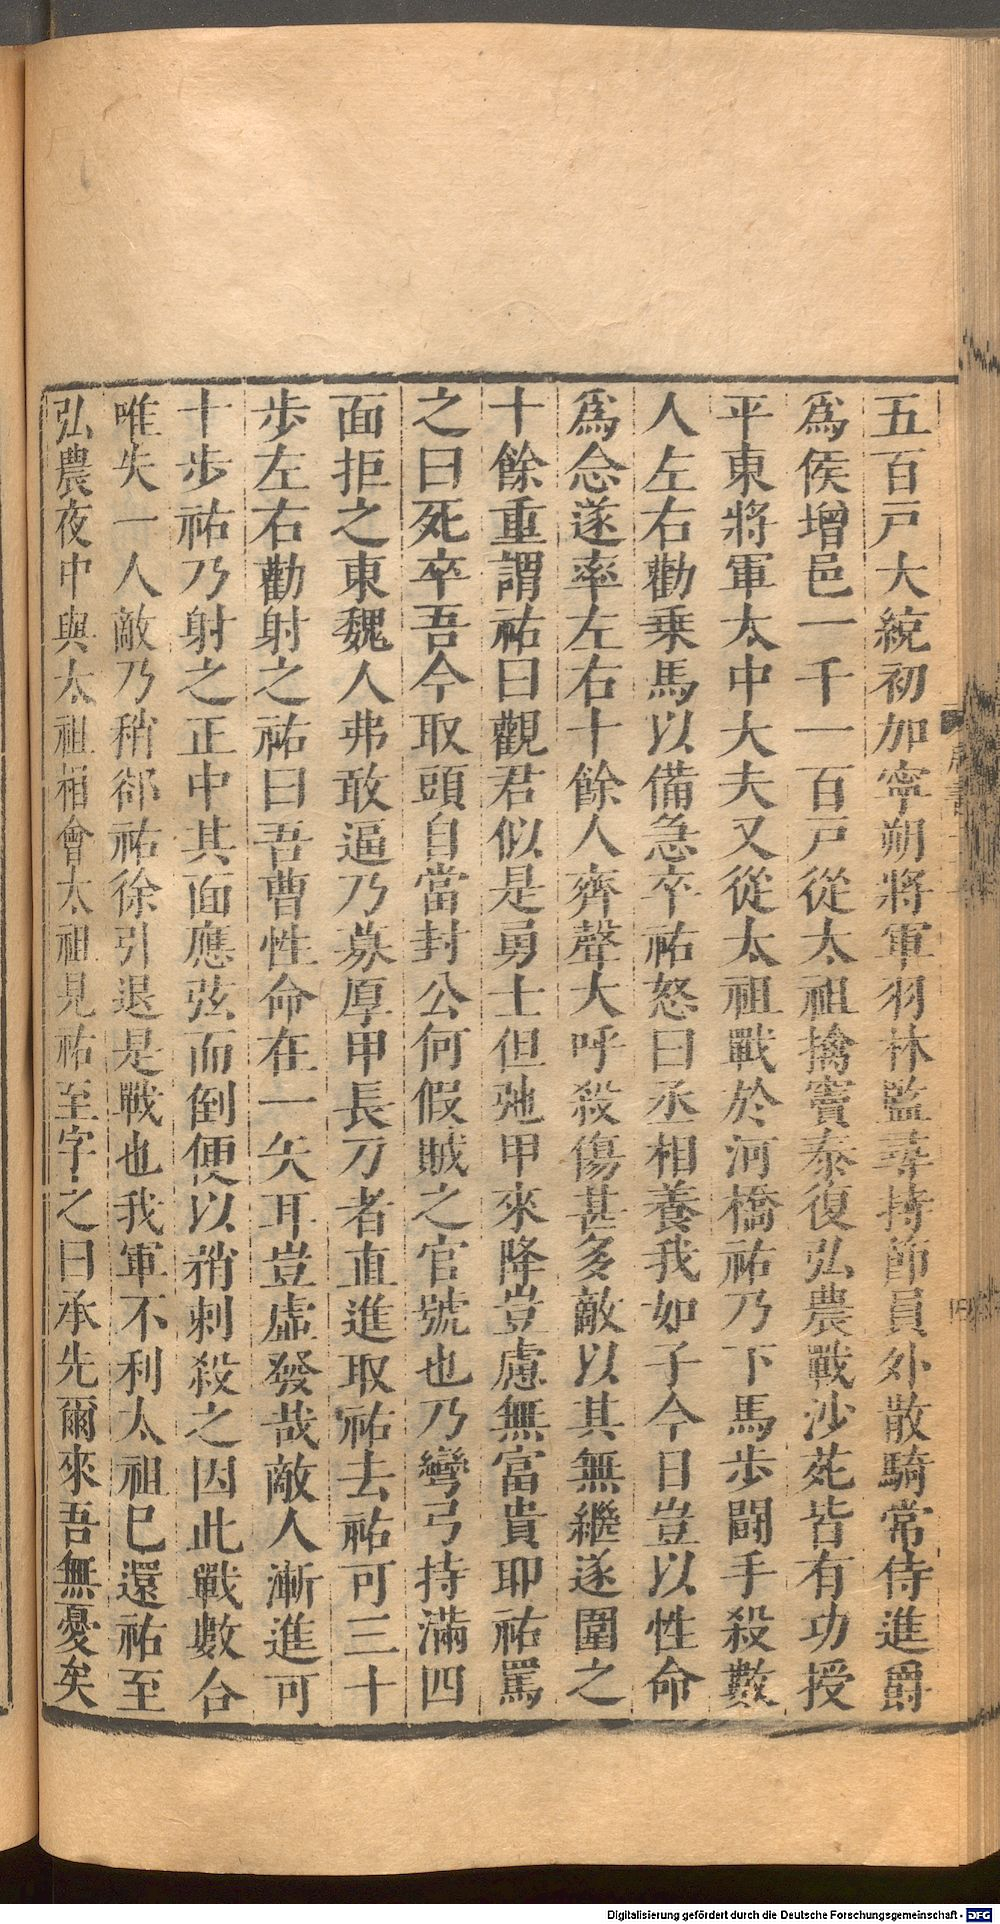 五百戸大統初加寧朔將軍羽林監尋持節員外散騎常侍進爵
爲侯增邑一千一百戸從太祖擒竇泰復弘農戰沙苑皆有功授
平東將軍太中大夫又從太祖戰於河橋祐乃下馬步鬪手殺數
人左右勸乗馬以備急卒祐怒曰丞相養我如子今日豈以性命
爲念遂率左右十餘人齊聲大呼殺傷甚多敵以其無繼遂圍之
十餘重謂祐曰觀君似是勇士但弛甲來降豈慮無富貴耶祐罵
之曰死卒吾今取頭自當封公何假賊之官號也乃彎弓持滿四
面拒之東魏人弗敢逼乃募厚甲長刀者直進取祐去祐可三十
步左右勸射之祐曰吾曹性命在一矢耳豈虛發哉敵人漸進可
十步祐乃射之正中其面應弦而倒便以矟刺殺之因此戰數合
唯失一人敵乃稍郤祐徐引退是戰也我軍不利太祖巳還祐至
弘農夜中與太祖相會太祖見祐至字之曰承先爾來吾無憂矣
Digitalisierung gefördert durch die Deutsche Forschungsgemeinschaft - DFG